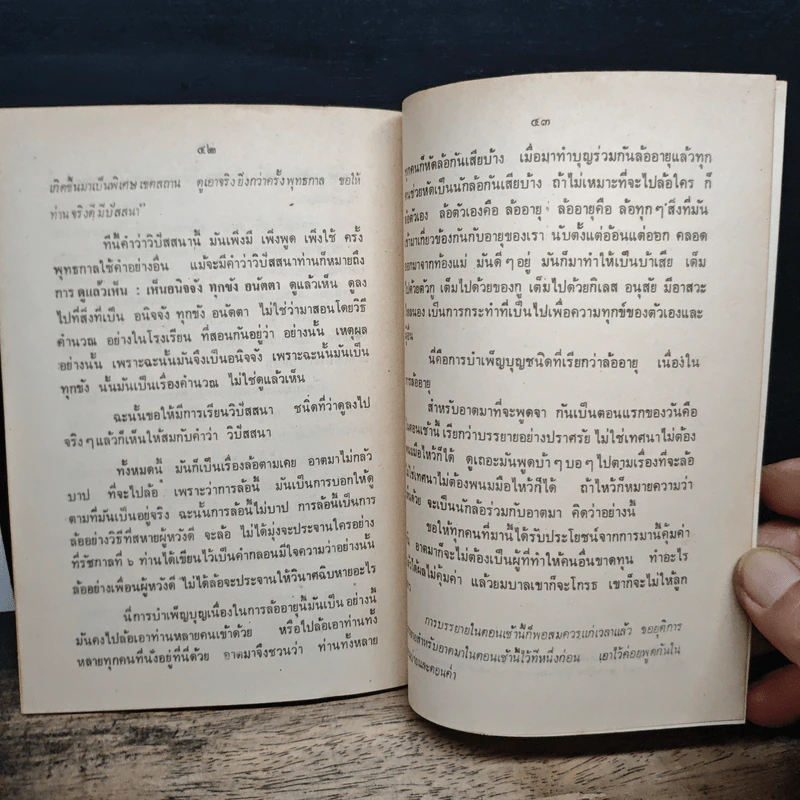 ๔๒
เกิดขึ้นมาเป็นพิเศษ เขตสถาน ดูเอาจริง ยิ่งกว่าครั้ง พุทธกาล ขอให้
ท่าน จริงดี มีปัสสนา"
ทีนี้คำว่าวิปัสสนานี้ มันเพิ่งมี เพิ่งพูด เพิ่งใช้ ครั้ง
พุทธกาลใช้คำอย่างอื่น แม้จะมีคำว่าวิปัสสนาท่านก็หมายถึง
การ ดูแล้วเห็น : เห็นอนิจจัง ทุกขัง อนัตตา ดูแล้วเห็น ดูลง
ไปที่สิ่งที่เป็น อนิจจัง ทุกขัง อนัตตา ไม่ใช่ว่ามาสอนโดยวิธี
คำนวณ อย่างในโรงเรียน ที่สอนกันอยู่ว่า อย่างนั้น เหตุผล
อย่างนั้น เพราะฉะนั้นมันจึงเป็นอนิจจัง เพราะฉะนั้นมันเป็น
ทุกขัง นั้นมันเป็นเรื่องคำนวณ ไม่ใช่ดูแล้วเห็น
ฉะนั้นขอให้มีการเรียนวิปัสสนา ชนิดที่ว่าดูลงไป
จริง ๆ แล้วก็เห็นให้สมกับคำว่า วิปัสสนา
ทั้งหมดนี้ มันก็เป็นเรื่องล้อตามเคย อาตมาไม่กลัว
บาป ที่จะไปล้อ เพราะว่าการล้อนี้ มันเป็นการบอกให้ดู
ตามที่มันเป็นอยู่จริง ฉะนั้นการล้อนี้ไม่บาป การล้อนี้เป็นการ
ล้ออย่างวิธีที่สหายผู้หวังดี จะล้อ ไม่ได้มุ่งจะประจานใครอย่าง
ที่รัชกาลที่ ๖ ท่านได้เขียนไว้เป็นคำกลอนมีใจความว่าอย่างนั้น
ล้ออย่างเพื่อนผู้หวังดี ไม่ได้ล้อจะประจานให้วินาศฉิบหายอะไร
นี่การบำเพ็ญบุญเนื่องในการล้ออายุนี้มันเป็นอย่างนี้
มันคงไปล้อเอาท่านหลายคนเข้าด้วย หรือไปล้อเอาท่านทั้ง
หลายทุกคนที่นั่งอยู่ที่นี่ด้วย อาตมาจึงชวนว่า ท่านทั้งหลาย
๔๓
ทุกคนก็หัดล้อกันเสียบ้าง เมื่อมาทำบุญร่วมกันล้ออายุแล้วทุก
คนช่วยหัดเป็นนักล้อกันเสียบ้าง ถ้าไม่เหมาะที่จะไปล้อใคร ก็
ล้อตัวเอง ล้อตัวเองคือ ล้ออายุ ล้ออายุคือ ล้อทุก ๆ สิ่งที่มัน
เข้ามาเกี่ยวข้องกันกับอายุของเรา นับตั้งแต่อ้อนแต่ออก คลอด
ออกมาจากท้องแม่ มันดี ๆ อยู่ มันก็มาทำให้เป็นบ้าเสีย เต็ม
ไปด้วยตัวกู เต็มไปด้วยของกู เต็มไปด้วยกิเลส อนุสัย มีอาสวะ
ไหลนอง เป็นการกระทำที่เป็นไปเพื่อความทุกข์ของตัวเองและ
อื่น
นี่คือการบำเพ็ญบุญชนิดที่เรียกว่าล้ออายุ เนื่องใน
การล้ออายุ
สำหรับอาตมาที่จะพูดจา กันเป็นตอนแรกของวันคือ
ในตอนเช้านี้ เรียกว่าบรรยายอย่างปราศรัย ไม่ใช่เทศนาไม่ต้อง
พนมมือไหว้ก็ได้ ดูเถอะมันพูดบ้า ๆ บอ ๆ ไปตามเรื่องที่จะล้อ
ไม่ใช่เทศนาไม่ต้องพนมมือไหว้ก็ได้ ถ้าไหว้ก็หมายความว่า
ด้วย จะเป็นนักล้อร่วมกับอาตมา คิดว่าอย่างนี้
ขอให้ทุกคนที่มานี้ได้รับประโยชน์จากการมานี้คุ้มค่า
อาตมาก็จะไม่ต้องเป็นผู้ที่ทำให้คนอื่นขาดทุน ทำอะไร
ได้ผลไม่คุ้มค่า แล้วยมบาลเขาก็จะโกรธ เขาก็จะไม่ให้ลูก
การบรรยายในตอนเช้านี้ก็พอสมควรแก่เวลาแล้ว ขอยุติการ
สำหรับอาตมาในตอนเช้านี้ไว้ทีหนึ่งก่อน เอาไว้ค่อยพูดกันใน
และตอนค่ำ